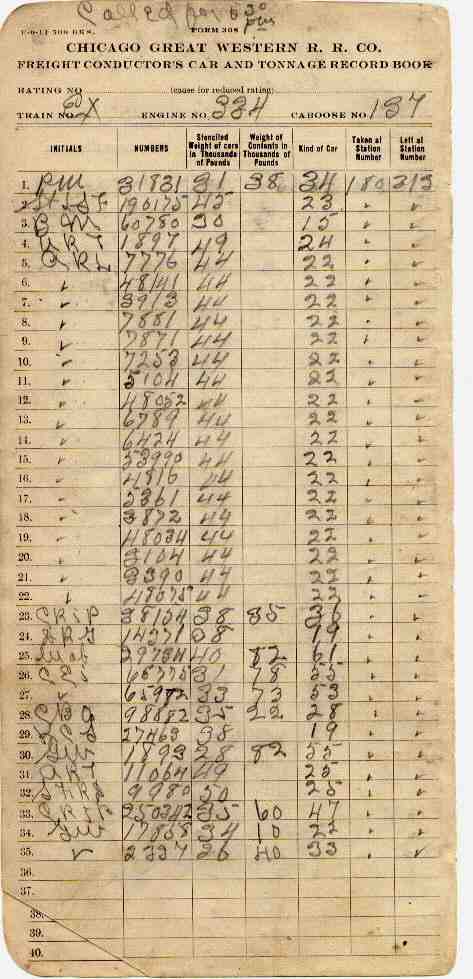 Called for 6 30 pm
FORM 308
CHICAGO GREAT WESTERN R. R. CO.
FREIGHT CONDUCTOR'S CAR AND TONNAGE RECORD BOOK
RATING NO. (cause for reduced rating)
TRAIN NO. X ENGINE NO. 334 CABOOSE NO. 137
INITIALS NUMBERS Stenciled Weight of cars in Thousands of Pounds Weight of Contents in Thousands of Pounds Kind of Car Taken at Station Number Left at Station Number
1. PM 31831 31 38 34 180 313
2. 190175 45 23
3. BM 60780 30 15
4. 1897 49 24
5. 7776 44 22
6. ✓ 48141 44 22
7. ✓ 3913 44 22
8. ✓ 7881 44 22
9. ✓ 7871 44 22
10. ✓ 7253 44 22
11. ✓ 5104 44 22
12. ✓ 48052 44 22
13. ✓ 6789 44 22
14. ✓ 6424 44 22
15. ✓ 53990 44 22
16. ✓ 4816 44 22
17. ✓ 5361 44 22
18. ✓ 3872 44 22
19. ✓ 48034 44 22
20. ✓ 3104 44 22
21. ✓ 3390 44 22
22. ✓ 48075 44 22
23. CRIP 38134 38 35 36
24. 14371 38 19
25. 29734 40 82 61
26. 65775 31 78 55
27. ✓ 65982 33 73 53
28. 98882 35 22 28
29. 27463 38 19
30. 1893 28 82 55
31. 11064 49 25
32. 9980 50 25
33. 250342 35 60 47
34. 17855 34 10 22
35. ✓ 2327 26 40 33
36.
37.
38.
39.
40.